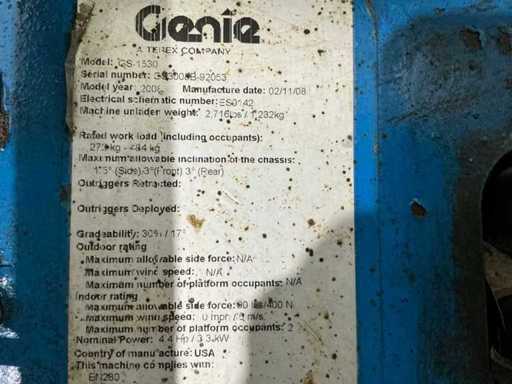 Genie
A TEREX COMPANY
Model: GS-1530
Serial number:
Model year: 2008 Manufacture date: 02/11/08
Electrical schematic number: ES0142
Machine unladen weight: 2,716lbs / 1,232kg
Rated work load (including occupants):
Maximum allowable inclination of the chassis:
(Side) 3°(Front) 3° (Rear)
Outriggers Retracted:
Outriggers Deployed:
Gradeability: 30% / 17°
Outdoor rating
Maximum allowable side force: N/A
Maximum wind speed: N/A
Maximum number of platform occupants: N/A
Indoor rating
Maximum allowable side force: 90 lbs/400 N
Maximum wind speed: 0 mph / 0 m/s.
Maximum number of platform occupants: 2
Nominal Power: 4.4 Hp / 3.3 kW
Country of manufacture: USA
This machine complies with:
EN280